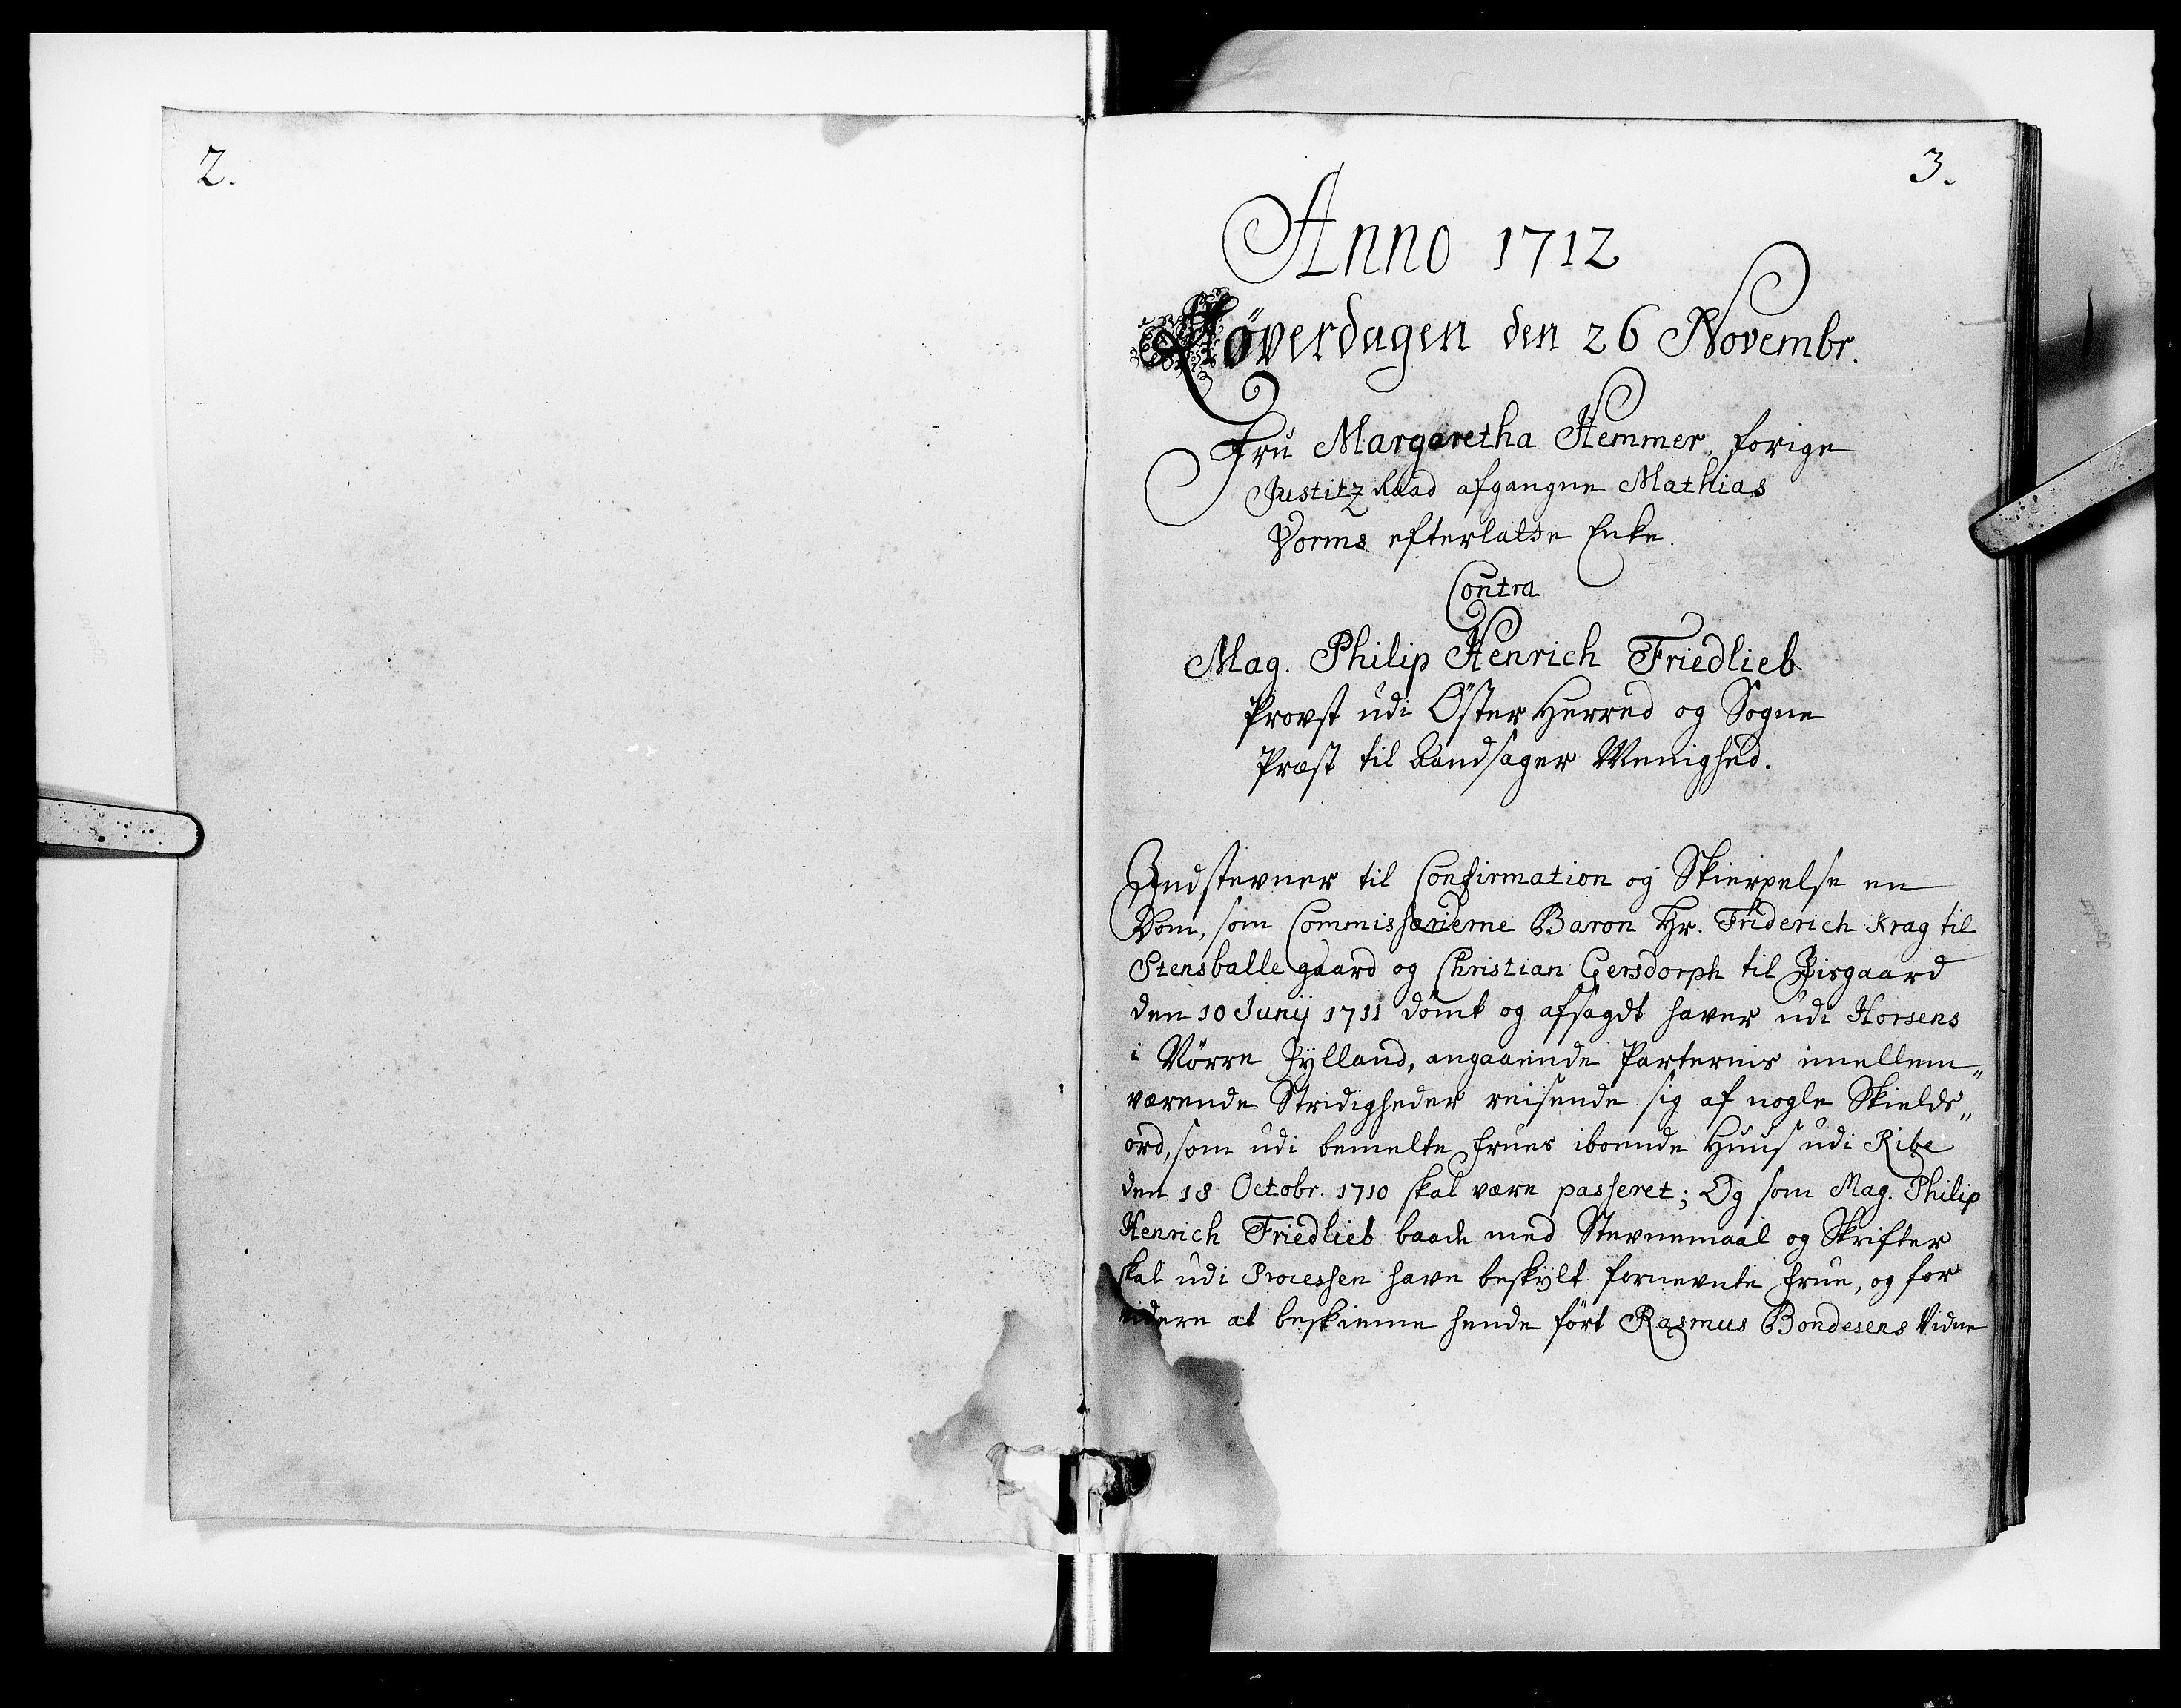 2.
3.
Anno 1712
Löverdagen den 26 Novembr.
Fru Margaretha Hemmer, forige
Justitz Raad afgangne Mathias
Vorms efterlatte Enke.
Contra
Mag. Philip Henrich Friedlieb
Provst udi Öster Herred og Sogne
Præst til Aandsager Menighed.
Indstevner til Confirmation og Skierpelse en
Dom, som Commissarierne Baron Hr. Friderich Krag til
Stensballe gaard og Christian Gersdorph til
den 10 Junij 1711 dömt og afsagdt haver udi Horsens
i Nörre Jylland, angaaende Parternis imellem„
værende Stridigheder reisende sig af nogle Skields„
ord, som udi bemelte Frues iboende Huus udi Ribe
den 18 Octobr. 1710 skal være passeret; Og som Mag. Philip
Henrich Friedlieb baade med Stevnemaal og Skrifter
skal udi Processen have beskylt fornevnte Frue, og for
videre at beskiemme hende fört Rasmus Bondesens Vidne